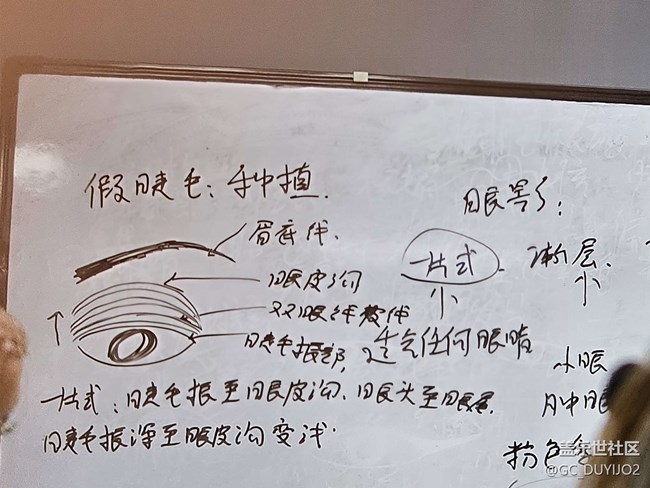 假睫毛：种植.
眉底线.
眼皮沟
双眼线
睫毛根部,
适合任何眼睛
一片式：睫毛根至眼皮沟、眼头至眼尾
睫毛根深至眼皮沟变浅.
眼影：
一片式
小
渐层.
小
小眼
粉色
盖乐世社区
@GC_DUYIJO2